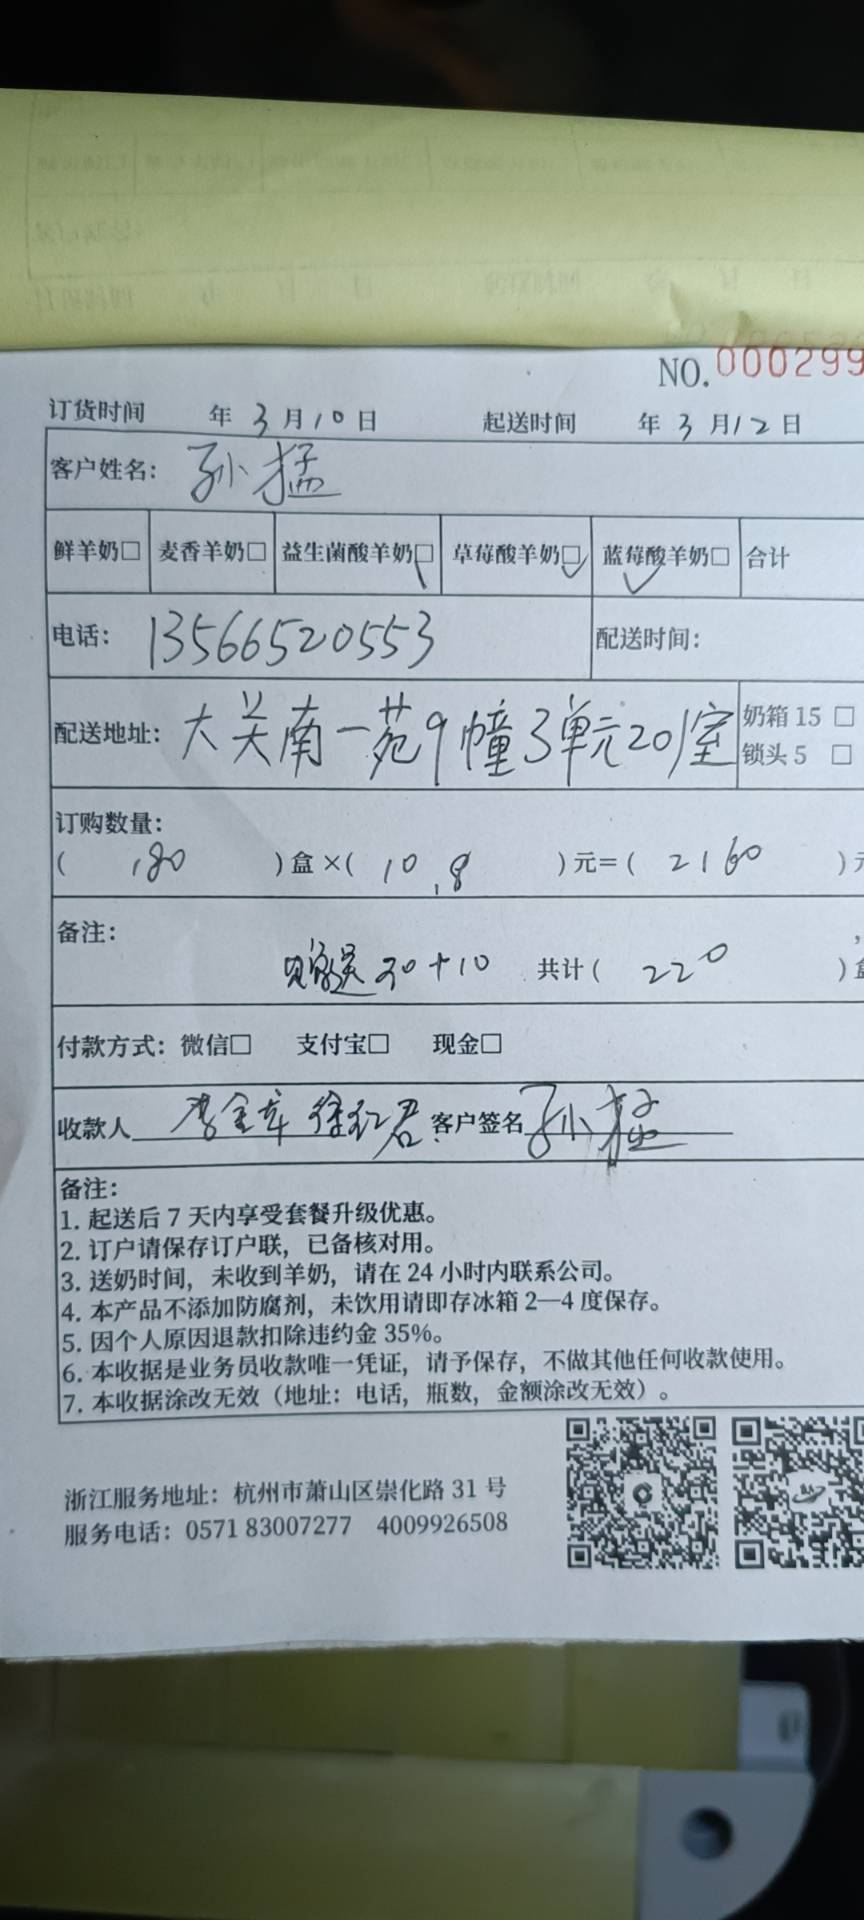 NO.000299
订货时间 年 3 月 10 日 起送时间 年 3 月 12 日
客户姓名：孙猛
鲜羊奶□ 麦香羊奶□ 益生菌酸羊奶□ 草莓酸羊奶□✓ 蓝莓酸羊奶□✓ 合计
电话：13566520553 配送时间：
配送地址：大关南一苑9幢3单元201室 奶箱 15 □
锁头 5 □
订购数量：
( 180 )盒 ×( 10.8 )元＝( 2160 )元
备注：
赠送30+10 共计( 220 )盒
付款方式：微信□ 支付宝□ 现金□
收款人 李金章 徐红君 客户签名 孙猛
备注：
1. 起送后 7 天内享受套餐升级优惠。
2. 订户请保存订户联，已备核对用。
3. 送奶时间，未收到羊奶，请在 24 小时内联系公司。
4. 本产品不添加防腐剂，未饮用请即存冰箱 2—4 度保存。
5. 因个人原因退款扣除违约金 35%。
6. 本收据是业务员收款唯一凭证，请予保存，不做其他任何收款使用。
7. 本收据涂改无效（地址：电话，瓶数，金额涂改无效）。
浙江服务地址：杭州市萧山区崇化路 31 号
服务电话：0571 83007277 4009926508